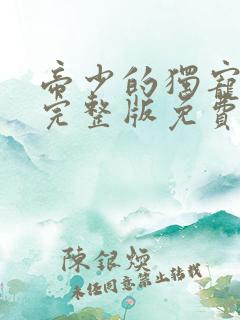 帝少的獨寵
完整版免費
陳銀煥
未經同意禁止轉載